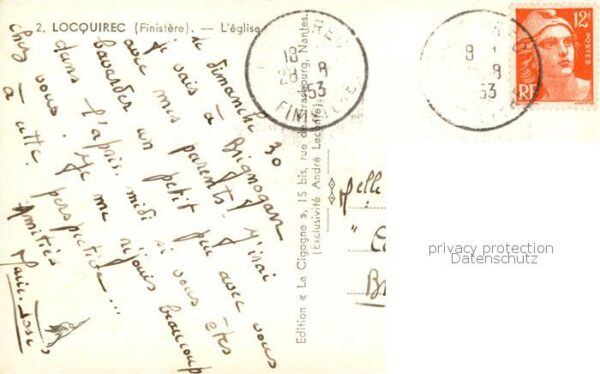 2. LOCQUIREC (Finistère). — L'église
le dimanche 30
je vais à Brignogan
avec mes parents. J'irai
bavarder un petit peu avec vous
dans l'après-midi si vous êtes
chez vous. Je me réjouis beaucoup
à cette perspective...
Amitiés
Edition « La Cigogne », 15 bis, rue de Strasbourg, Nantes.
(Exclusivité André Leconte)
18
28 8
53
FINISTERE
8
53
12F
POSTES
RF
Melle
privacy protection
Datenschutz